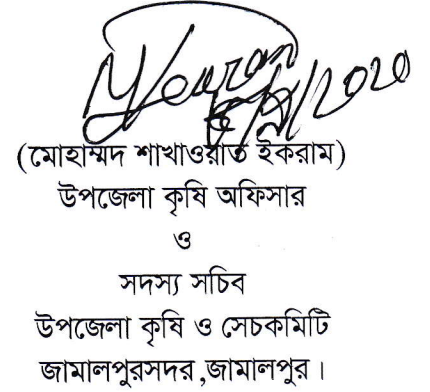 (মোহাম্মদ শাখাওয়াত ইকরাম)
উপজেলা কৃষি অফিসার
ও
সদস্য সচিব
উপজেলা কৃষি ও সেচকমিটি
জামালপুরসদর,জামালপুর।